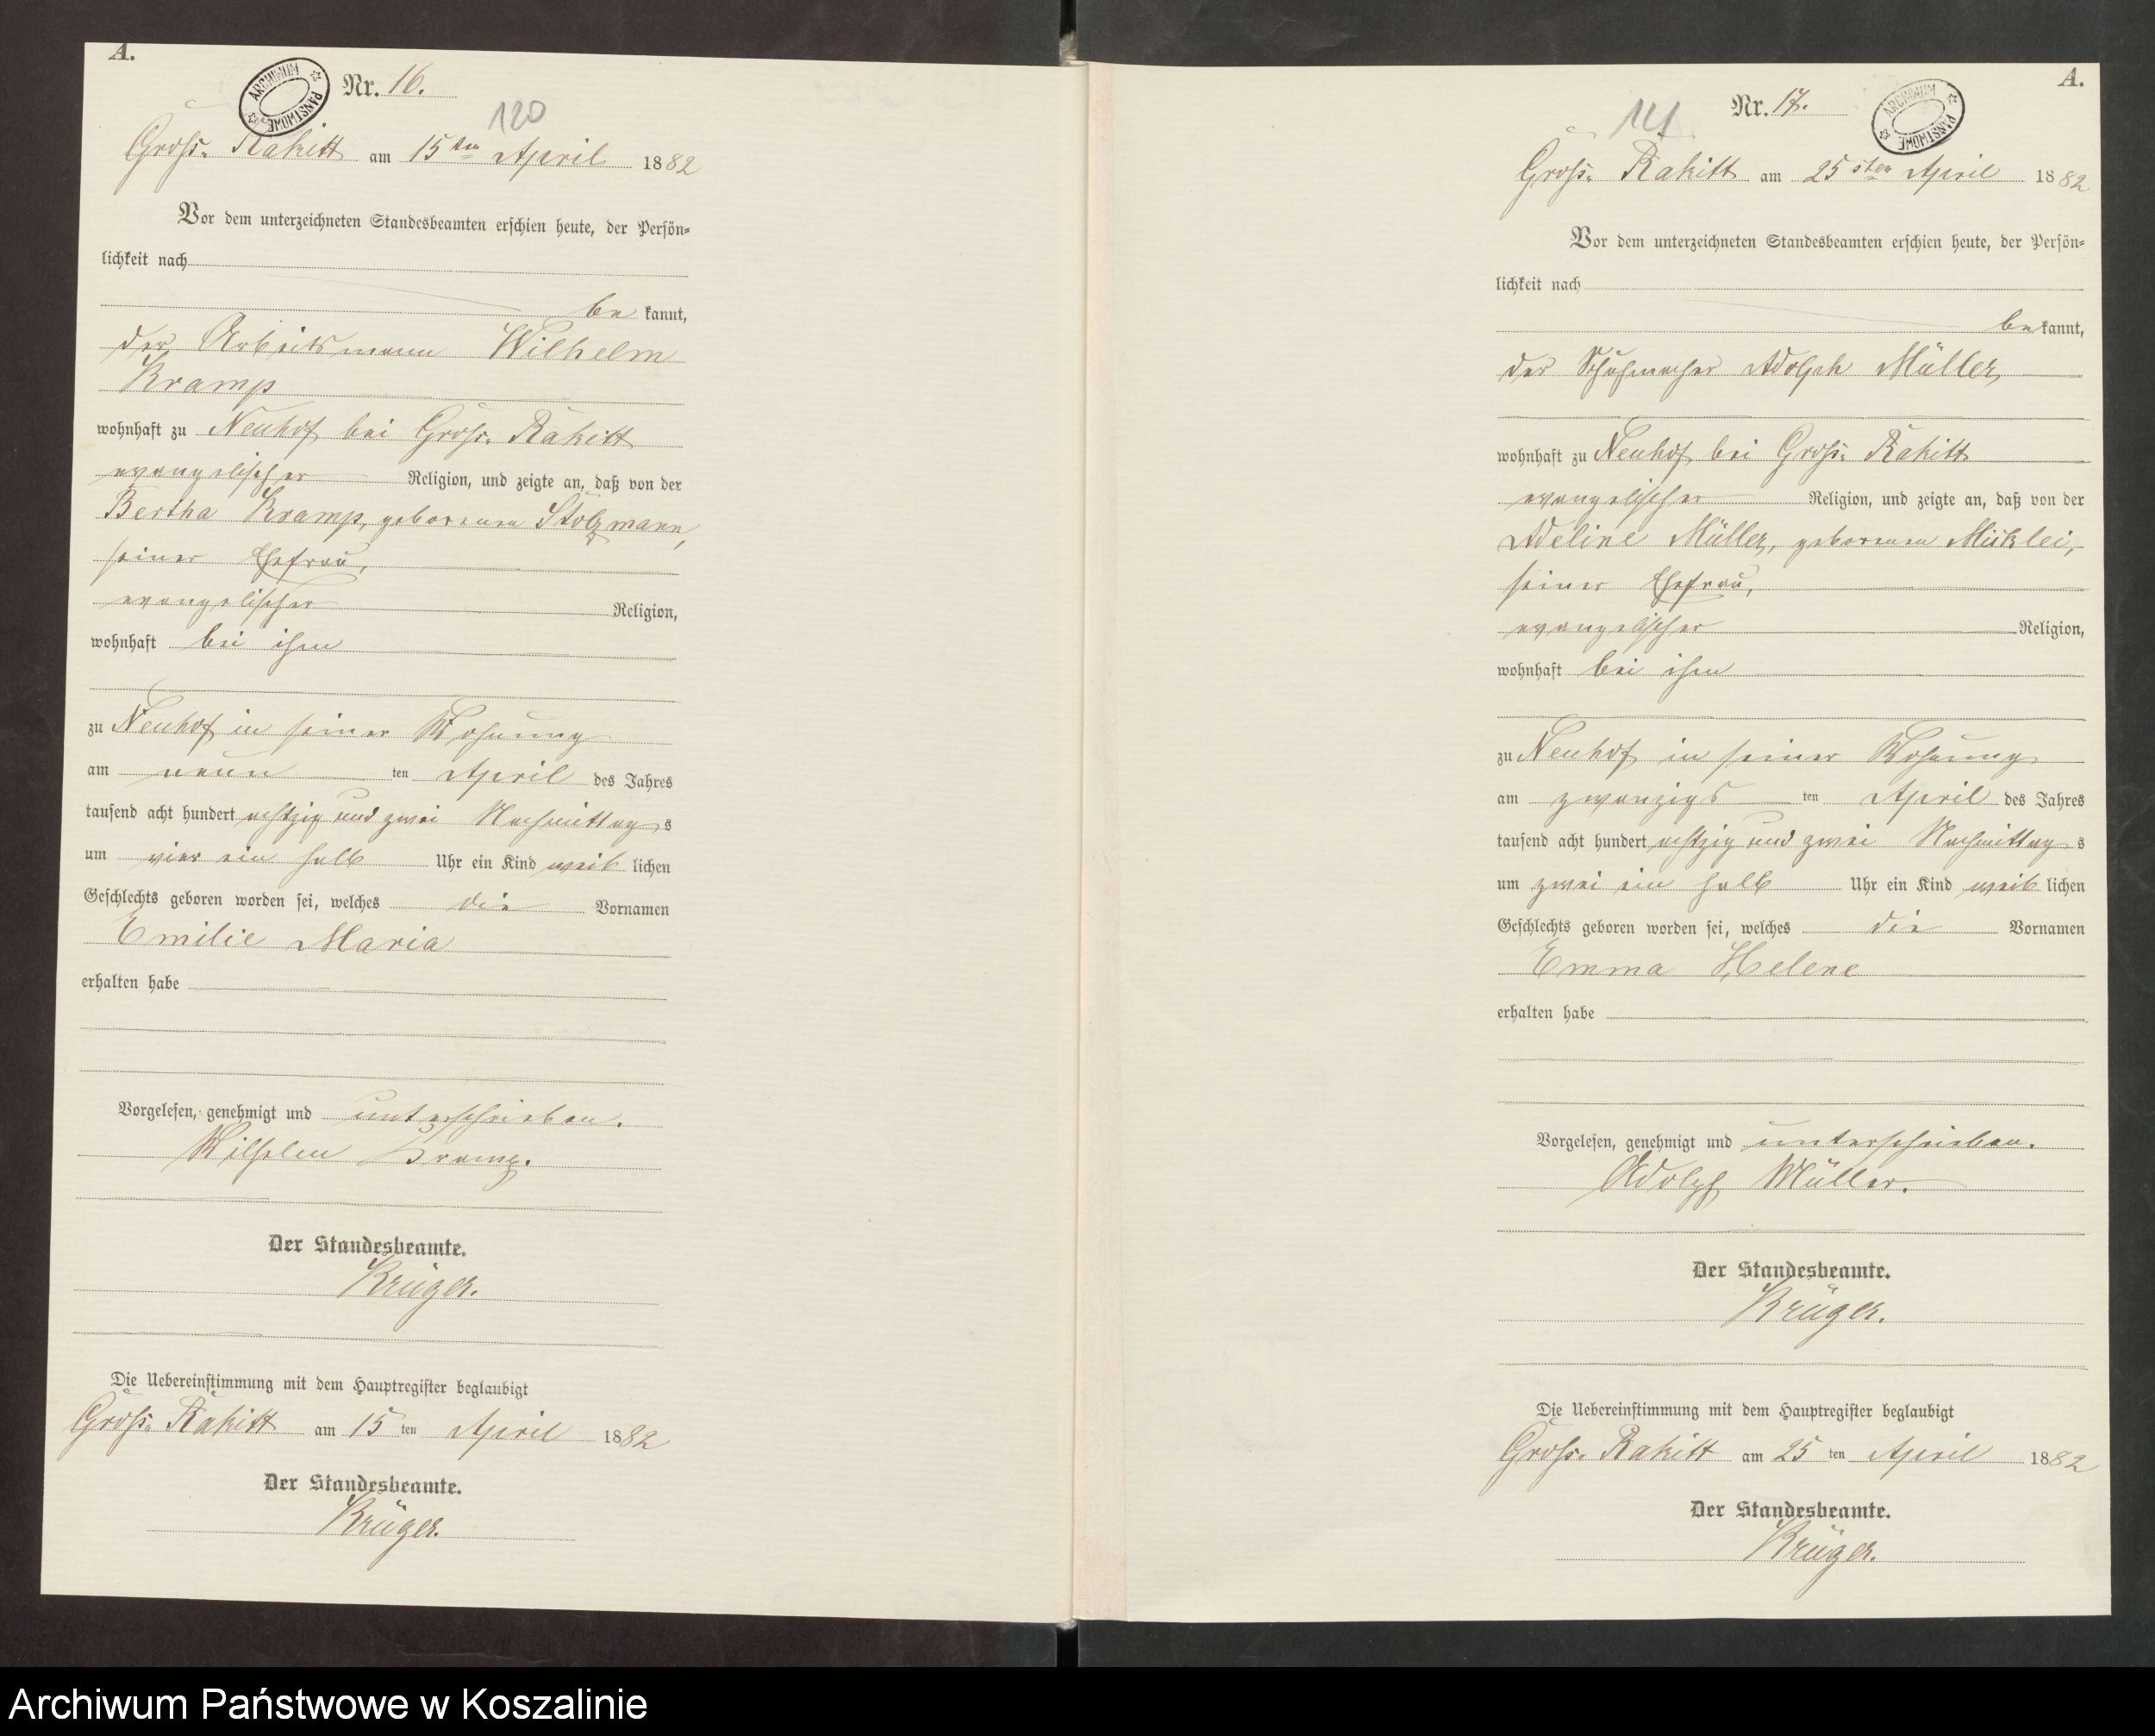 A.
ARCHIWUM PAŃSTWOWE
Nr. 16.
120
Groß. Rakitt am 15ten April 1882
Vor dem unterzeichneten Standesbeamten erschien heute, der Persön-
lichkeit nach
be kannt,
der Arbeitsmann Wilhelm
Kramp
wohnhaft zu Neuhof bei Groß. Rakitt
evangelischer Religion, und zeigte an, daß von der
Bertha Kramp, geborenen Stolzmann,
seiner Ehefrau,
evangelischer Religion,
wohnhaft bei ihm
zu Neuhof in seiner Wohnung
am neun ten April des Jahres
tausend acht hundert achtzig und zwei Nachmittag s
um vier ein halb Uhr ein Kind weib lichen
Geschlechts geboren worden sei, welches die Vornamen
Emilie Maria
erhalten habe
Vorgelesen, genehmigt und unterschrieben.
Wilhelm Kramp.
Der Standesbeamte.
Krüger.
Die Uebereinstimmung mit dem Hauptregister beglaubigt
Groß. Rakitt am 15 ten April 1882
Der Standesbeamte.
Krüger.
A.
ARCHIWUM PAŃSTWOWE
Nr. 17.
Groß. Rakitt am 25sten April 1882
Vor dem unterzeichneten Standesbeamten erschien heute, der Persön-
lichkeit nach
be kannt,
der Schuhmacher Adolph Müller,
wohnhaft zu Neuhof bei Groß. Rakitt
evangelischer Religion, und zeigte an, daß von der
Adeline Müller, geborenen
seiner Ehefrau,
evangelischer Religion,
wohnhaft bei ihm
zu Neuhof in seiner Wohnung
am zwanzigs ten April des Jahres
tausend acht hundert achtzig und zwei Nachmittag s
um zwei ein halb Uhr ein Kind weib lichen
Geschlechts geboren worden sei, welches die Vornamen
Emma Helene
erhalten habe
Vorgelesen, genehmigt und unterschrieben.
Adolph Müller.
Der Standesbeamte.
Krüger.
Die Uebereinstimmung mit dem Hauptregister beglaubigt
Groß. Rakitt am 25 ten April 1882
Der Standesbeamte.
Krüger.
Archiwum Państwowe w Koszalinie